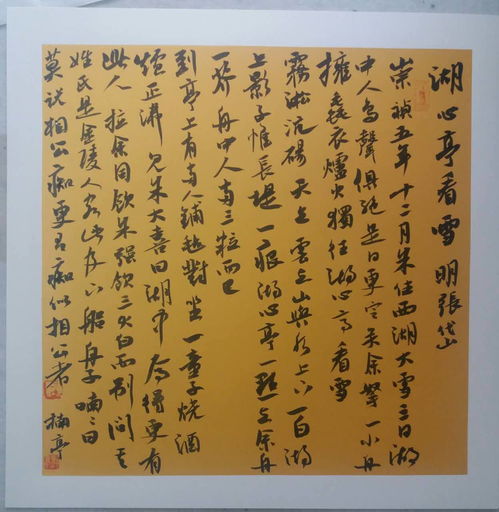 湖心亭看雪 明張岱
崇禎五年十二月余住西湖大雪三日湖
中人鳥聲俱絕是日更定矣余拏一小舟
擁毳衣爐火獨往湖心亭看雪
霧淞沆碭天與雲與山與水上下一白湖
上影子惟長堤一痕湖心亭一點與余舟
一芥舟中人兩三粒而已
到亭上有兩人鋪氈對坐一童子燒酒
爐正沸見余大喜曰湖中焉得更有
此人拉余同飲余強飲三大白而別問其
姓氏是金陵人客此及下船舟子喃喃曰
莫说相公痴更有痴似相公者 楠亭